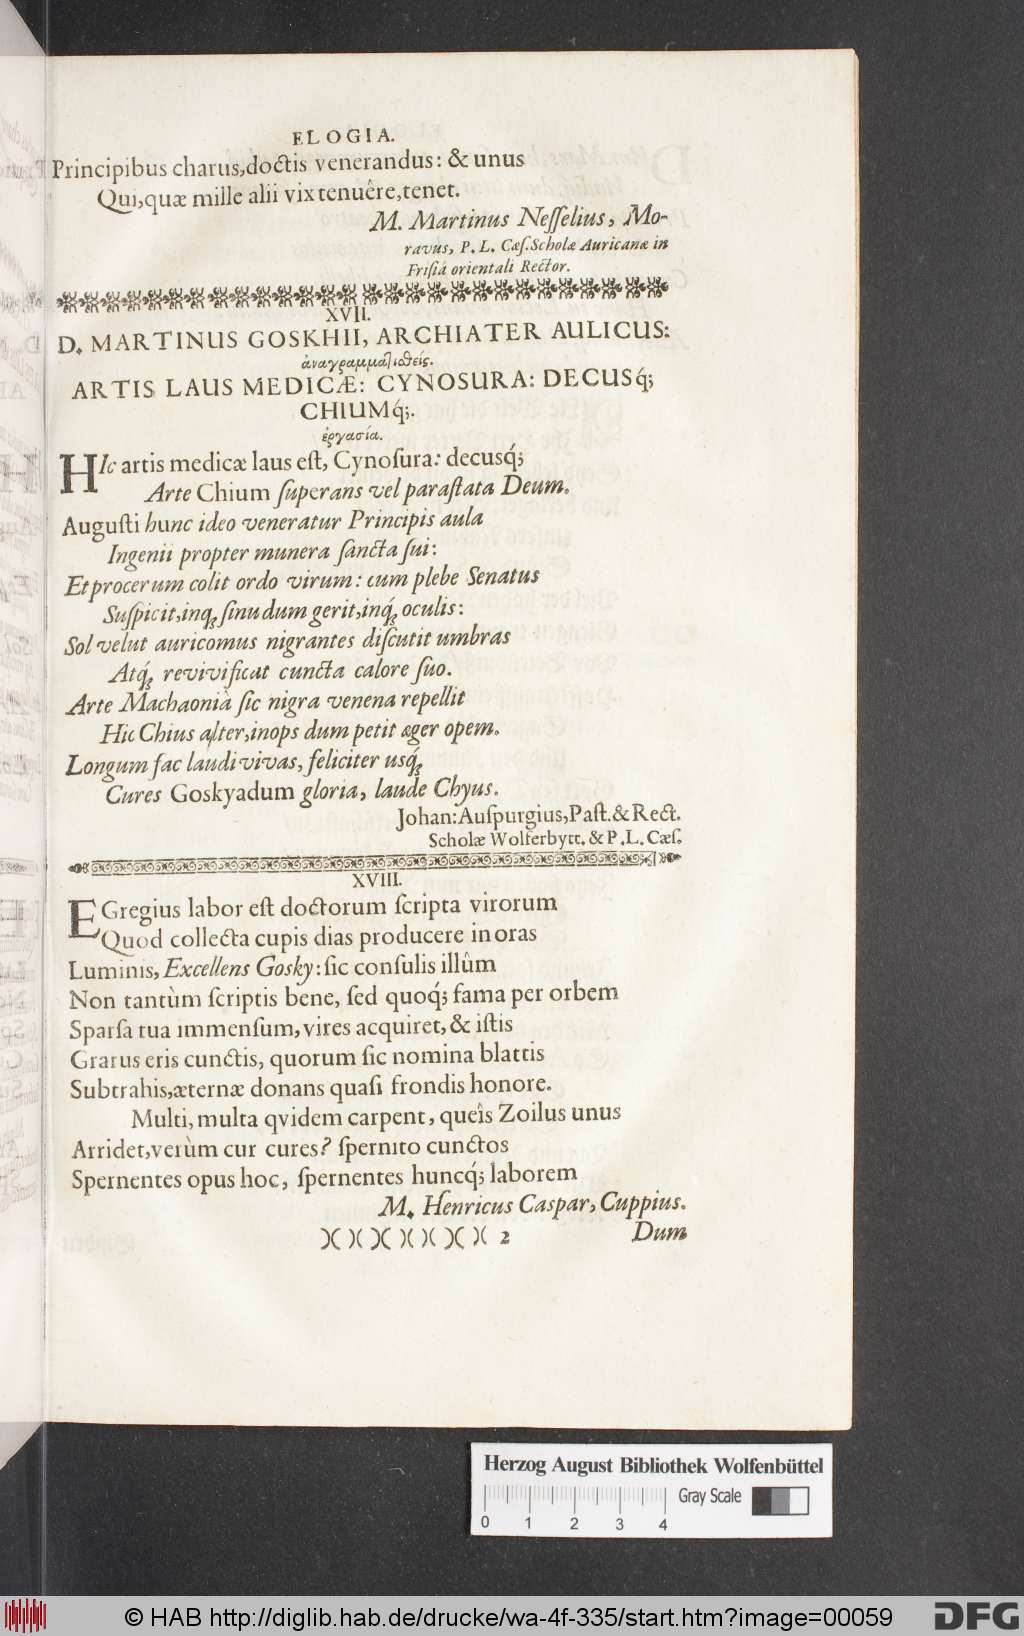 ELOGIA.
Principibus charus, doctis venerandus: & unus
Qui, quæ mille alii vix tenuêre, tenet.
M. Martinus Neſſelius, Mo-
ravus, P. L. Cæſ. Scholæ Auricanæ in
Friſiâ orientali Rector.
XVII.
D. MARTINUS GOSKHII, ARCHIATER AULICUS:
ἀναγραμματιϑείς.
ARTIS LAUS MEDICÆ: CYNOSURA: DECUSq́;
CHIUMq́;.
ἐργασία.
HIc artis medicæ laus eſt, Cynoſura: decusq́;
Arte Chium ſuperans vel paraſtata Deum.
Auguſti hunc ideo veneratur Principis aula
Ingenii propter munera ſancta ſui:
Et procerum colit ordo virum: cum plebe Senatus
Suſpicit, inq; ſinu dum gerit, inq́; oculis:
Sol velut auricomus nigrantes diſcutit umbras
Atq́; revivificat cuncta calore ſuo.
Arte Machaoniâ ſic nigra venena repellit
Hic Chius alter, inops dum petit æger opem.
Longum fac laudi vivas, feliciter usq́;
Cures Goskyadum gloria, laude Chyus.
Johan: Auſpurgius, Paſt. & Rect.
Scholæ Wolferbytt. & P. L. Cæſ.
XVIII.
EGregius labor eſt doctorum ſcripta virorum
Quod collecta cupis dias producere in oras
Luminis, Excellens Gosky: ſic conſulis illûm
Non tantùm ſcriptis bene, ſed quoq́; fama per orbem
Sparſa tua immenſum, vires acquiret, & iſtis
Gratus eris cunctis, quorum ſic nomina blattis
Subtrahis, æternæ donans quaſi frondis honore.
Multi, multa qvidem carpent, queîs Zoilus unus
Arridet, verùm cur cures? ſpernito cunctos
Spernentes opus hoc, ſpernentes huncq́; laborem
M. Henricus Caspar, Cuppius.
)( )( )( )( )( )( )( 2 Dum
Herzog August Bibliothek Wolfenbüttel
Gray Scale
0 1 2 3 4
© HAB http://diglib.hab.de/drucke/wa-4f-335/start.htm?image=00059
DFG